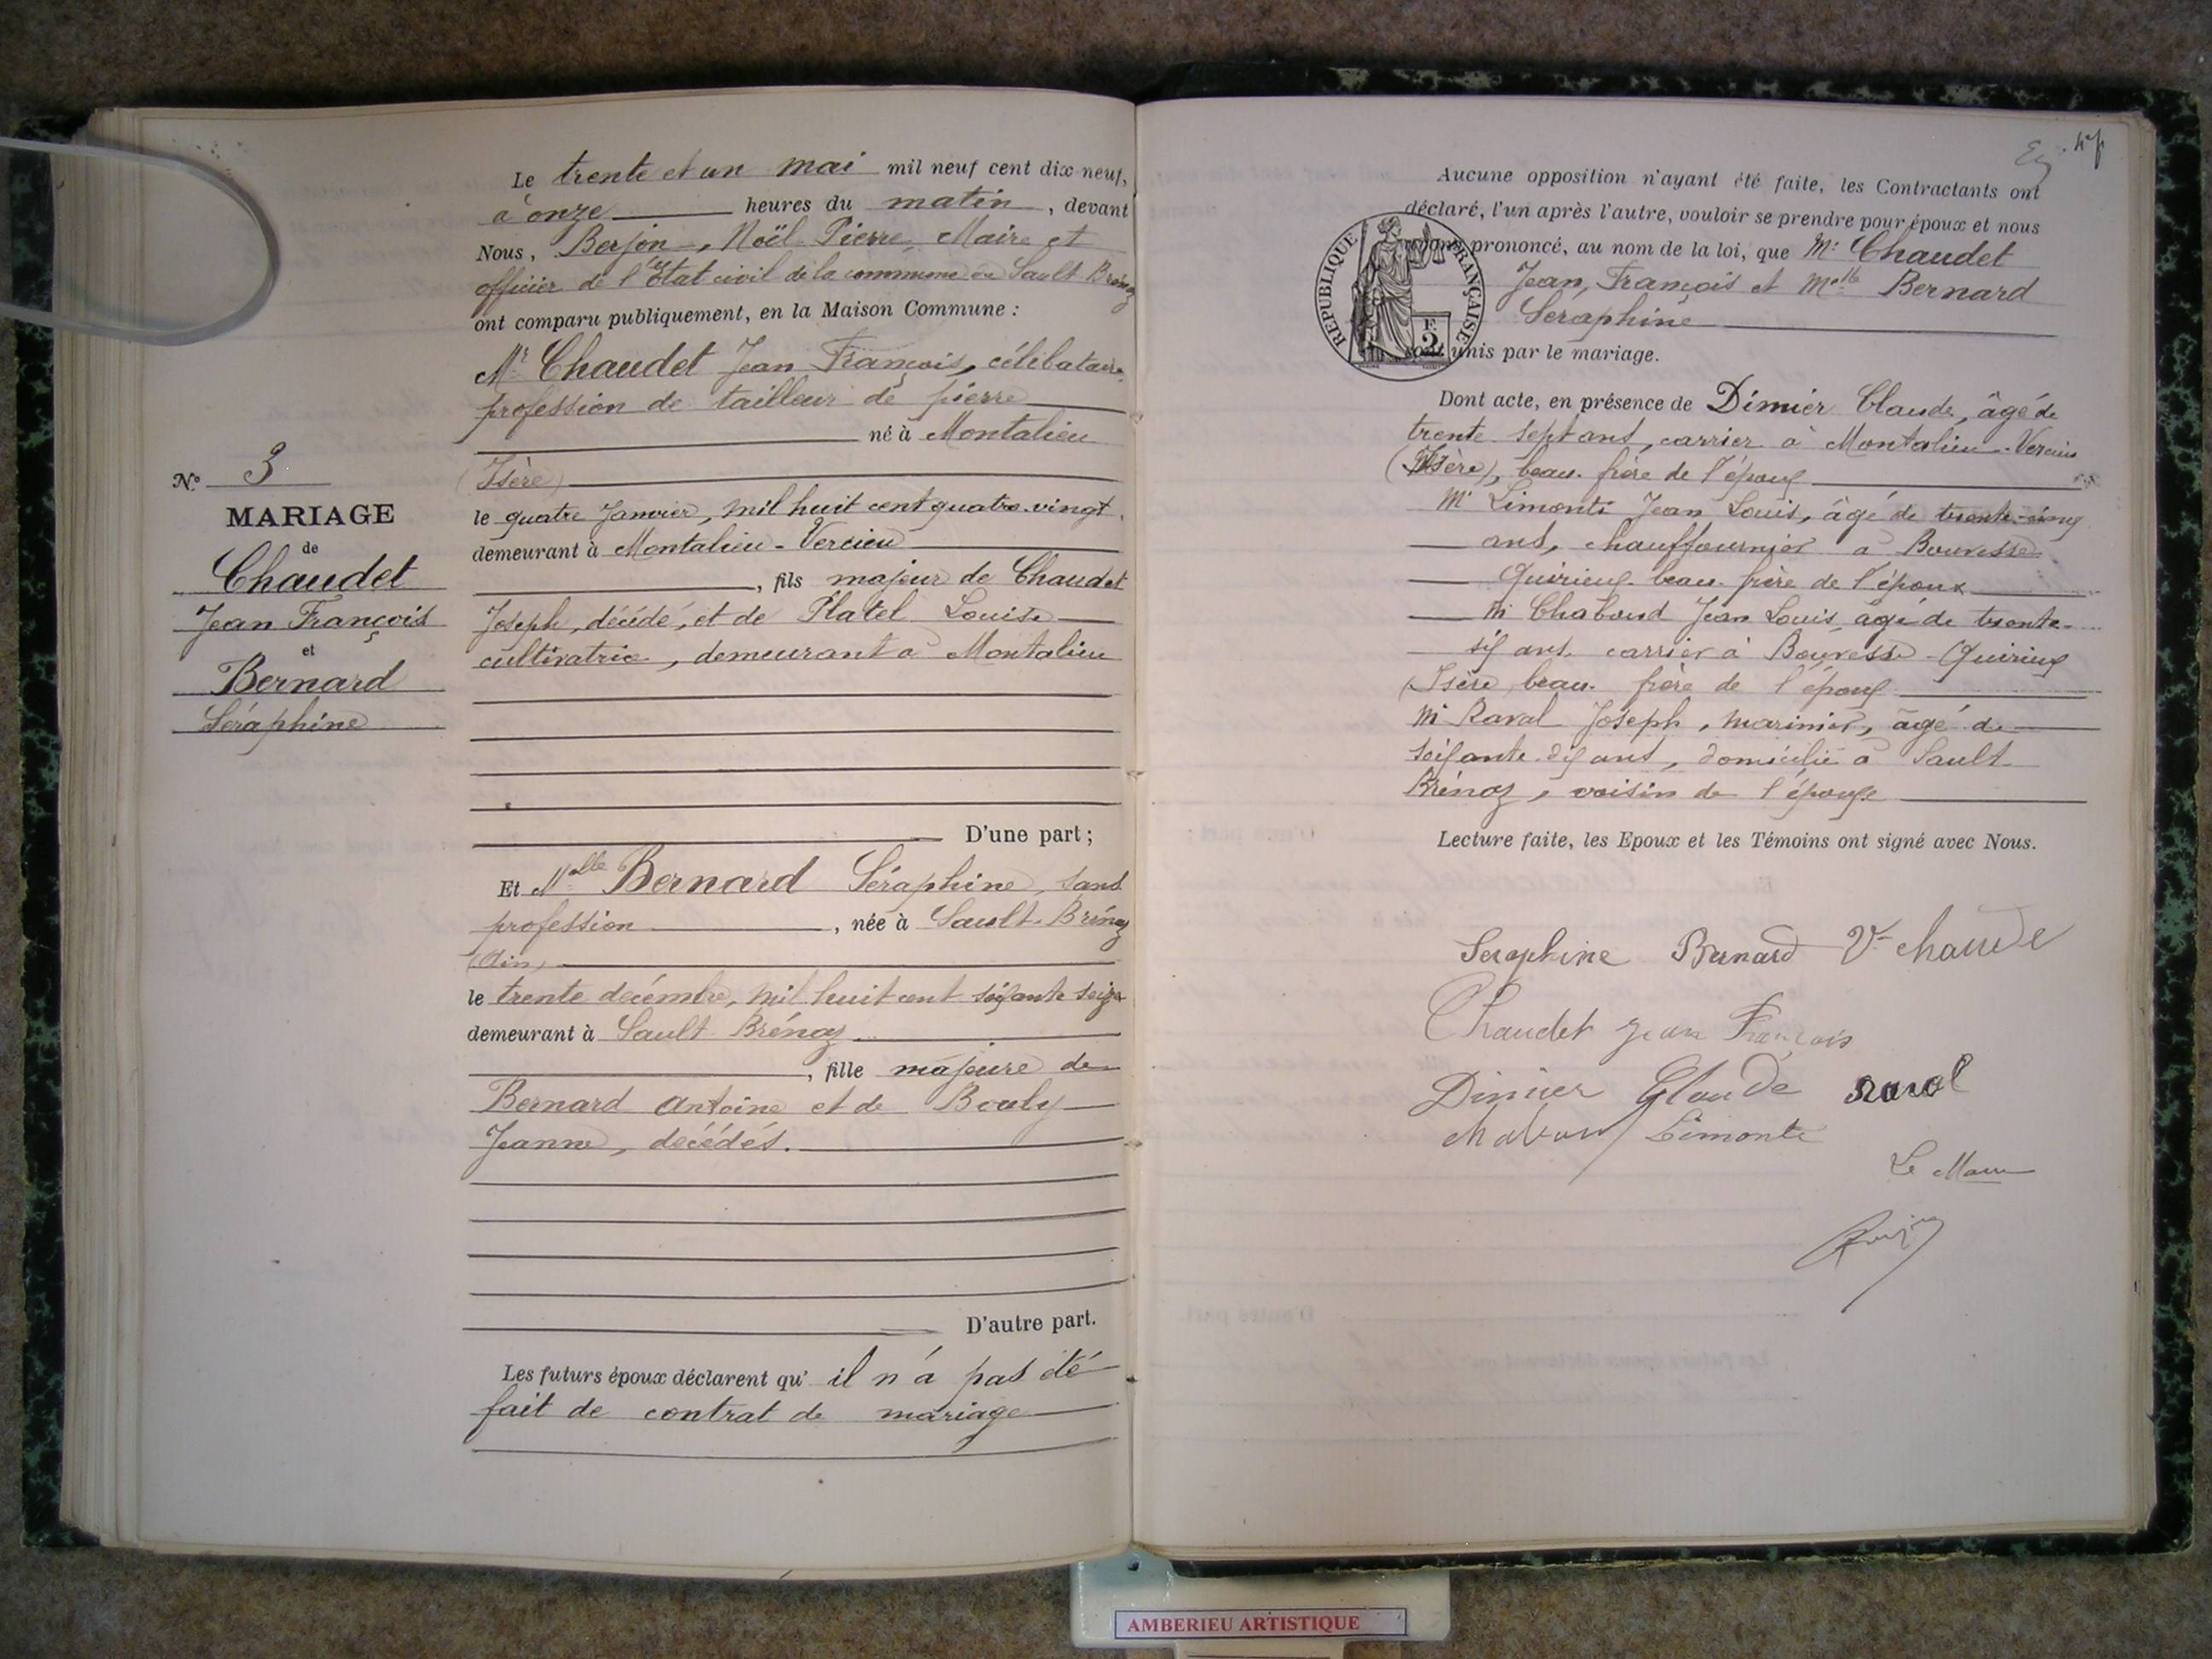 Le trente et un mai mil neuf cent dix neuf,
à onze heures du matin, devant
Nous, Berjon, Noël Pierre, Maire et
officier de l'état civil de la commune de Sault Brénaz
ont comparu publiquement, en la Maison Commune :
Mr Chaudet Jean François, célibataire,
profession de tailleur de pierre
né à Montalieu
(Isère)
le quatre Janvier, mil huit cent quatre-vingt,
demeurant à Montalieu-Vercieu
, fils majeur de Chaudet
Joseph, décédé, et de Platel Louise
cultivatrice, demeurant à Montalieu
D'une part ;
Et Melle Bernard Séraphine, sans
profession, née à Sault-Brénaz
(Ain)
le trente décembre, mil huit cent soixante seize
demeurant à Sault Brénaz
, fille majeure de
Bernard Antoine et de Bouly
Jeanne, décédés.
D'autre part.
Les futurs époux déclarent qu' il n'a pas été
fait de contrat de mariage
No 3
MARIAGE
de
Chaudet
Jean François
et
Bernard
Séraphine
Aucune opposition n'ayant été faite, les Contractants ont
déclaré, l'un après l'autre, vouloir se prendre pour époux et nous
avons prononcé, au nom de la loi, que Mr Chaudet
Jean, François et Melle Bernard
Séraphine
sont unis par le mariage.
RÉPUBLIQUE FRANÇAISE
F
2
Dont acte, en présence de Dimier Claude, âgé de
trente sept ans, carrier à Montalieu-Vercieu
(Isère), beau-frère de l'époux
Mr Limonti Jean Louis, âgé de trente-cinq
ans, chauffournier à Bouvesse
Quirieux beau-frère de l'époux
Mr Chaboud Jean Louis, âgé de trente-
six ans, carrier à Bouvesse-Quirieux
(Isère, beau-frère de l'époux
Mr Raval Joseph, marinier, âgé de
soixante-dix ans, domicilié à Sault
Brénaz, voisin de l'épouse
Lecture faite, les Epoux et les Témoins ont signé avec Nous.
Seraphine Bernard Chaude
Chaudet Jean François
Dimier Claude Raval
Limonti
Le Maire
AMBERIEU ARTISTIQUE